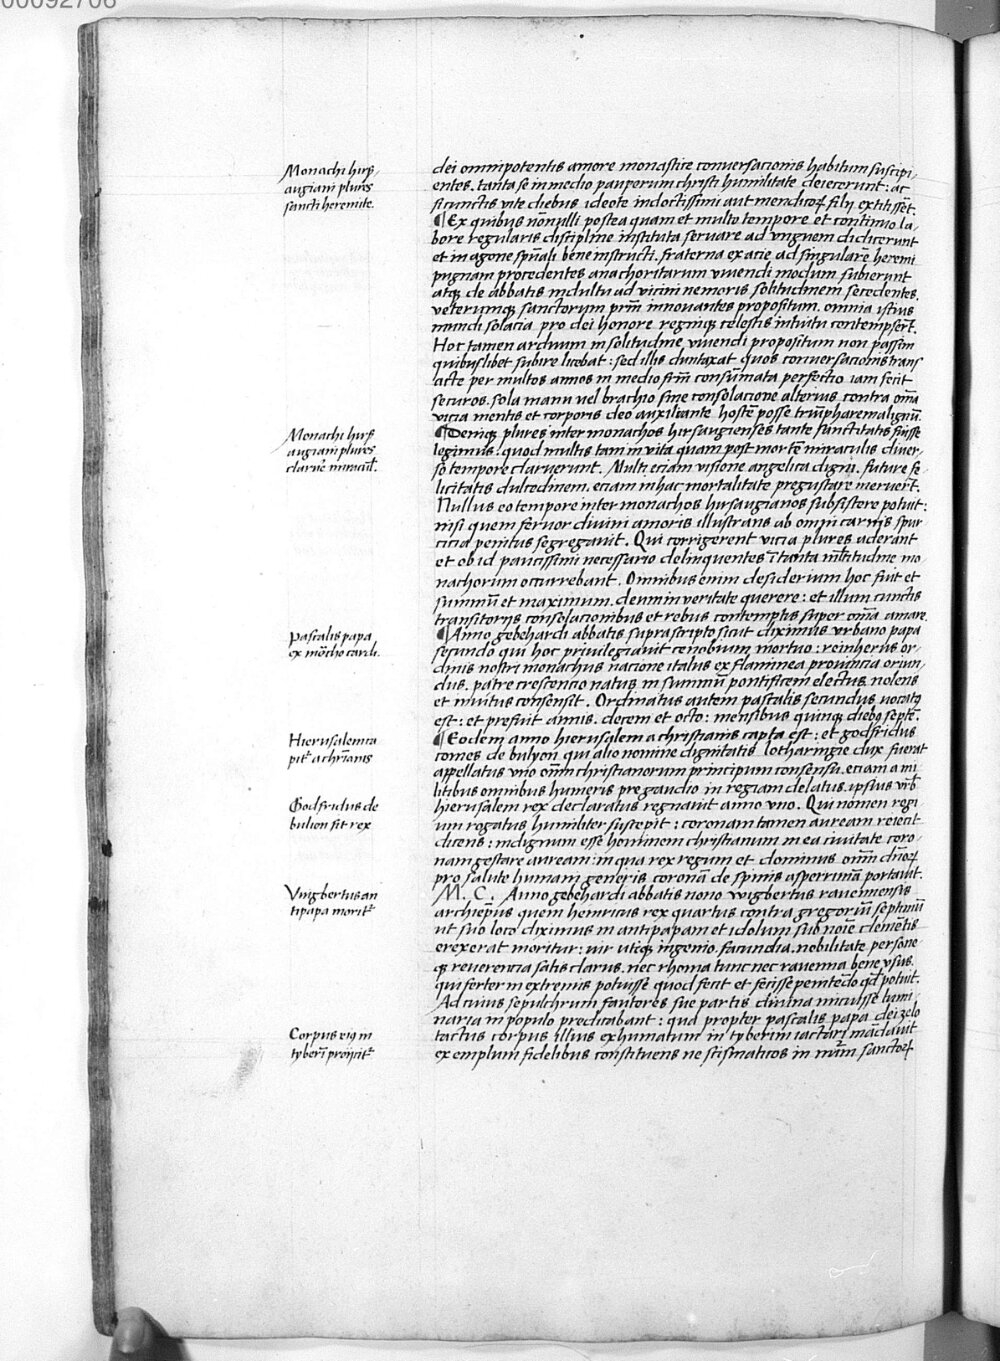 00092706
Monachi hirs,
augiani plures
sancti heremite.
dei omnipotentis amore monastice conversacionis habitum suscipi,
entes. tanta se in medio pauperum christi humilitate deiecerunt: ac
si cunctis vite diebus ideote indoctissimi aut mendicoꝝ filij extitissēt.
¶ Ex quibus nōnulli postea quam et multo tempore et continuo la,
bore regularis discipline instituta servare ad vnguem didicerunt
et in agone spūali bene instructi. fraterna ex acie ad singularē heremi
pugnam procedentes anachoritarum vivendi modum subierunt
atqꝫ de abbatis indultu ad vicini nemoris solitudinem secedentes.
veterumqꝫ sanctorum prm̄ innovantes propositum. omnia istius
mundi solacia pro dei honore regniqꝫ celestis intuitu contempserūt.
Hoc tamen arduum in solitudine vivendi propositum non passim
quibuslibet subire licebat: sed illis duntaxat quos conversacionis trans
acte per multos annos in medio frm̄ consūmata perfectio iam fecit
securos. sola manu vel brachio sine consolacione alterius contra oīa
vicia mentis et corporis deo auxiliante hostē posse triūphare malignū.
Monachi hirs
augiani plures
claruēt miracul̄.
¶ Deniqꝫ plures inter monachos hirsaugienses tante sanctitatis fuisse
legimus. quod multis tam in vita quam post mortē miraculis diver,
so tempore claruerunt. Multi eciam visione angelica digni. future fe,
licitatis dulcedinem. eciam in hac mortalitate pregustare meruerūt.
Nullus eo tempore inter monachos hirsaugianos subsistere potuit:
nisi quem fervor divini amoris illustrans ab omni carnis spur
cicia penitus segregavit. Qui corrigerent vicia plures aderant
et ob id paucissimi necessario delinquentes ī tanta mltitudine mo
nachorum occurrebant. Omnibus enim desiderium hoc fuit et
summū et maximum. deum in veritate querere: et illum cunctis
transitorijs consolacionibus et rebus contemptis super oīa amare.
Pascalis papa
ex mōcho cardi.
¶ Anno gebehardi abbatis suprascripto sicut diximus vrbano papa
secundo qui hoc privilegiavit cenobium mortuo: reinherus or,
dinis nostri monachus nacione italus ex flaminea provincia oriun,
dus. patre crescencio natus in summū pontificem electus. nolens
et invitus consensit. Ordinatus autem pascalis secundus vocatꝰ
est: et prefuit annis. decem et octo: mensibus quinqꝫ diebꝰ septē.
Hierusalem ca
pit̄ a chrīanis
¶ Eodem anno hierusalem a christianis capta est: et godfridus
comes de bulyon qui alio nomine dignitatis lotharingie dux fuerat
appellatus vno om̄ christianorum principum consensu. eciam a mi
litibus omnibus humeris pre gaudio in regiam delatus. ipsius vrb̄
Godfridus de
bulion fit rex
hierusalem rex declaratus regnavit anno vno. Qui nomen regi
um rogatus humiliter suscepit: coronam tamen auream reiecit
dicens: indignum esse hominem christianum in ea civitate coro,
nam gestare auream: in qua rex regum et dominus om̄ dn̄oꝝ
pro salute humani generis coronā de spinis asperrimā portavit.
Vuigbertus an
tipapa morit̄
M. C. Anno gebehardi abbatis nono wigbertus ravennensis
archiepūs quem heinricus rex quartus contra gregoriū septimū
ut suo loco diximus in antipapam et idolum sub noīe clemētis
erexerat moritur: vir utiqꝫ ingenio. facundia. nobilitate persone
qꝫ reverencia satis clarus. nec rhoma tunc nec ravenna bene vsus.
qui fertur in extremis potuisse quod fecit et fecisse penitēdo qd̄ potuit.
Ad cuius sepulchrum fautores sue partis divina micuisse lumi
naria in populo predicabant: qua propter pascalis papa dei zelo
Corpus eiꝰ in
tyberī proijcit̄
tactus corpus illius exhumatum in tyberim iactari mādavit
exemplum fidelibus constituens ne scismaticos in nūm sanctoꝝ